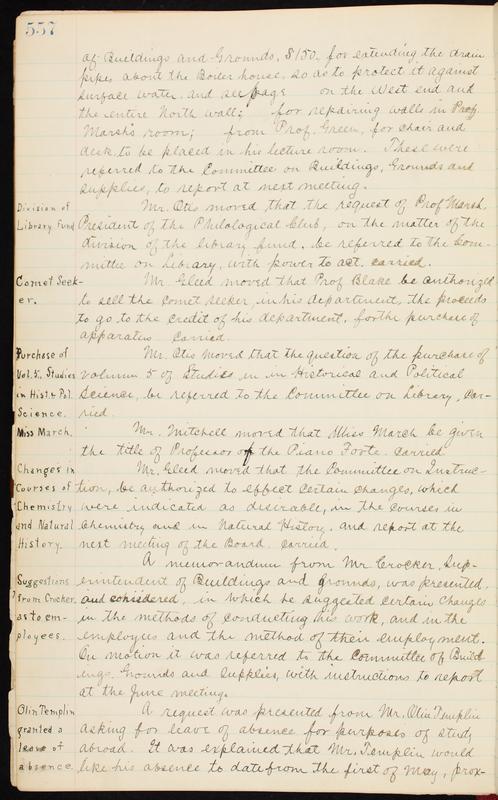 557
of Buildings and Grounds, $150. for extending the drain
pipes about the Boiler house, so as to protect it against
surface water, and seepage on the West end and
the entire North wall; for repairing walls in Prof.
Marsh's room; from Prof. Green, for chair and
desk to be placed in his lecture room. These were
referred to the Committee on Buildings, Grounds and
Supplies, to report at next meeting.
Division of Mr. Otis moved that the request of Prof Marsh
Library Fund President of the Philological Club, on the matter of the
division of the library fund, be referred to the Com-
mittee on Library, with power to act. carried.
Comet Seek- Mr. Gleed moved that Prof Blake be authorized
er. to sell the comet seeker, in his department, the proceeds
to go to the credit of his department, for the purchase of
apparatus carried.
Purchase of Mr. Otis moved that the question of the purchase of
Vol. 5., Studies volumn 5 of Studies in in Historical and Political
in Hist. & Pol. Science, be referred to the Committee on Library, car-
Science. ried.
Miss March. Mr. Mitchell moved that Miss March be given
the title of Professor of the Piano Forte. carried.
Changes in Mr. Gleed moved that the Committee on Instruc-
Courses of tion, be authorized to effect certain changes, which
Chemistry were indicated as desirable, in the courses in
and Natural Chemistry and in Natural History, and report at the
History. next meeting of the Board. carried.
A memorandum from Mr Crocker, Sup-
Suggestions erintendent of Buildings and Grounds, was presented,
from Crocker, and considered, in which he suggested certain changes
as to em- in the methods of conducting his work, and in the
ployees. employees and the method of their employment.
On motion it was referred to the Committee of Build
ings, Grounds and Supplies, with instructions to report
at the June meeting.
Olin Templin A request was presented from Mr. Olin Templin
granted a asking for leave of absence for purposes of study
leave of abroad. It was explained that Mr. Templin would
absence like his absence to date from the first of May, prox-